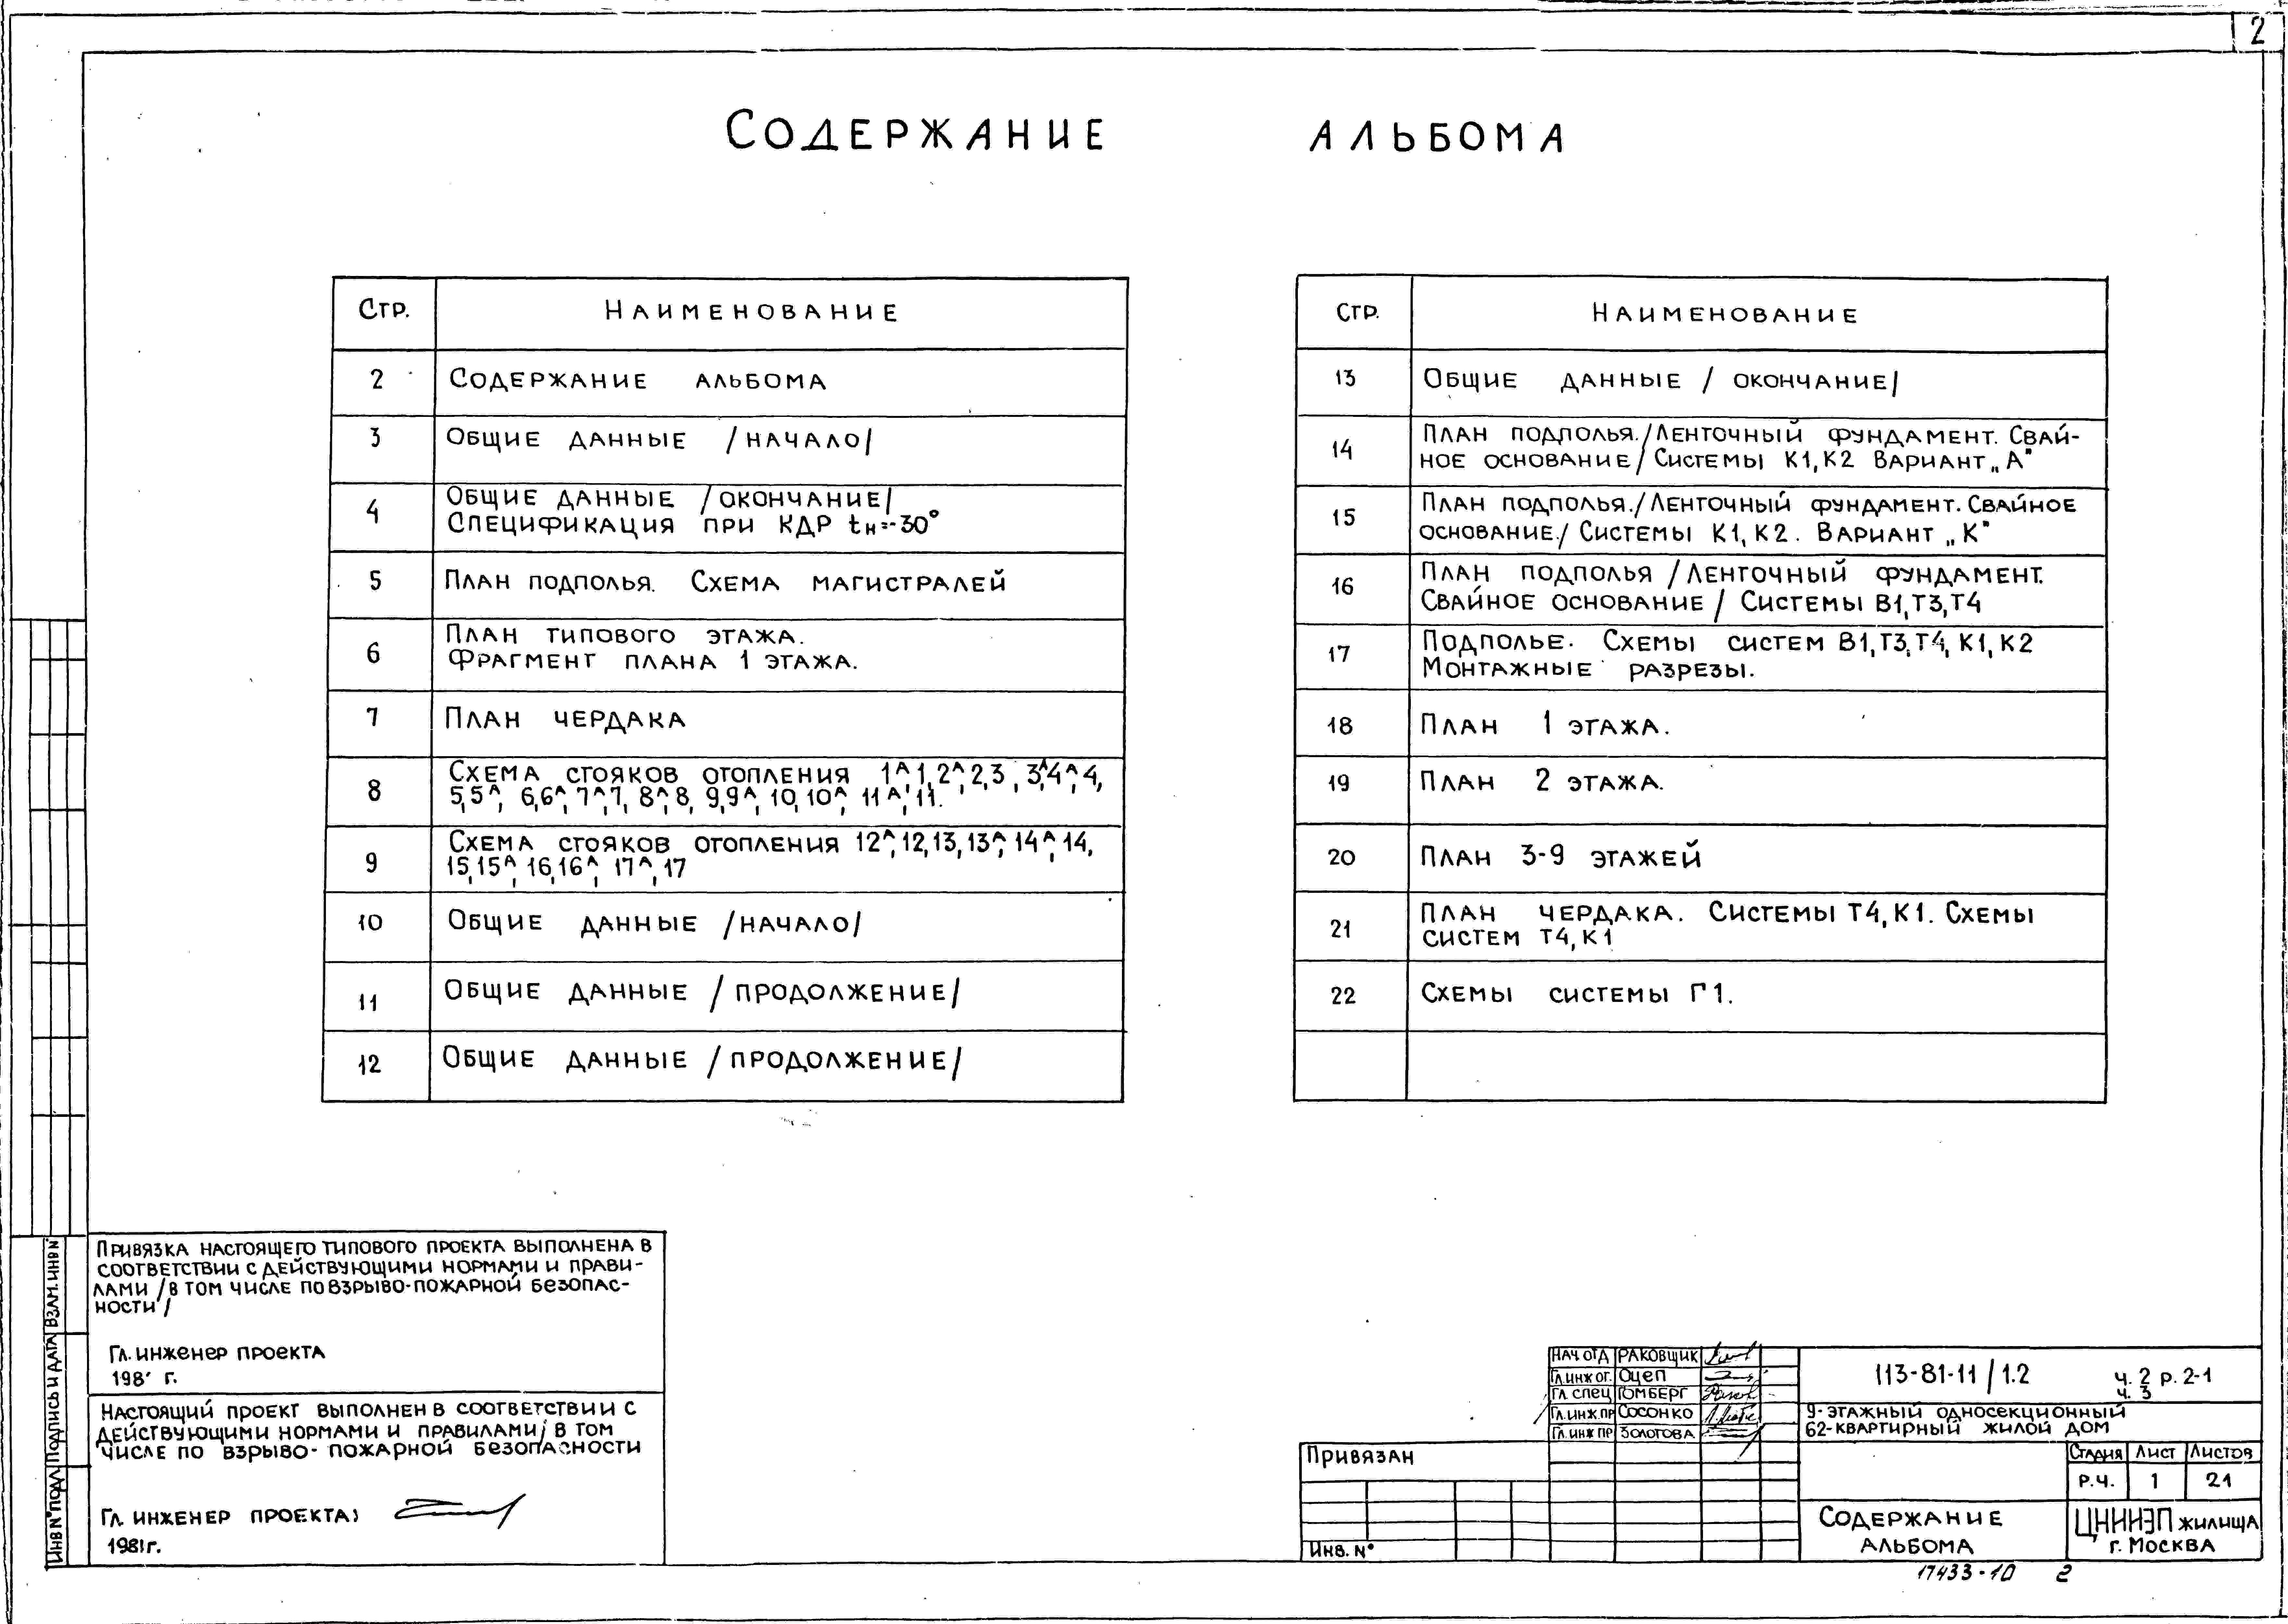 2
СОДЕРЖАНИЕ АЛЬБОМА
СТР. НАИМЕНОВАНИЕ
2 СОДЕРЖАНИЕ АЛЬБОМА
3 ОБЩИЕ ДАННЫЕ /НАЧАЛО/
4 ОБЩИЕ ДАННЫЕ /ОКОНЧАНИЕ/
СПЕЦИФИКАЦИЯ ПРИ КДР tн=-30°
5 ПЛАН ПОДПОЛЬЯ. СХЕМА МАГИСТРАЛЕЙ
6 ПЛАН ТИПОВОГО ЭТАЖА.
ФРАГМЕНТ ПЛАНА 1 ЭТАЖА.
7 ПЛАН ЧЕРДАКА
8 СХЕМА СТОЯКОВ ОТОПЛЕНИЯ 1ᴬ,1,2ᴬ,2,3,3ᴬ,4ᴬ,4,
5,5ᴬ, 6,6ᴬ,7ᴬ,7, 8ᴬ,8, 9,9ᴬ, 10,10ᴬ, 11ᴬ,11.
9 СХЕМА СТОЯКОВ ОТОПЛЕНИЯ 12ᴬ,12,13,13ᴬ,14ᴬ,14,
15,15ᴬ,16,16ᴬ, 17ᴬ,17
10 ОБЩИЕ ДАННЫЕ /НАЧАЛО/
11 ОБЩИЕ ДАННЫЕ /ПРОДОЛЖЕНИЕ/
12 ОБЩИЕ ДАННЫЕ /ПРОДОЛЖЕНИЕ/
СТР. НАИМЕНОВАНИЕ
13 ОБЩИЕ ДАННЫЕ / ОКОНЧАНИЕ/
14 ПЛАН ПОДПОЛЬЯ./ЛЕНТОЧНЫЙ ФУНДАМЕНТ. СВАЙ-
НОЕ ОСНОВАНИЕ/ СИСТЕМЫ К1,К2 ВАРИАНТ „А"
15 ПЛАН ПОДПОЛЬЯ./ЛЕНТОЧНЫЙ ФУНДАМЕНТ. СВАЙНОЕ
ОСНОВАНИЕ./ СИСТЕМЫ К1, К2. ВАРИАНТ „К"
16 ПЛАН ПОДПОЛЬЯ /ЛЕНТОЧНЫЙ ФУНДАМЕНТ.
СВАЙНОЕ ОСНОВАНИЕ / СИСТЕМЫ В1,Т3,Т4
17 ПОДПОЛЬЕ. СХЕМЫ СИСТЕМ В1,Т3,Т4, К1, К2
МОНТАЖНЫЕ РАЗРЕЗЫ.
18 ПЛАН 1 ЭТАЖА.
19 ПЛАН 2 ЭТАЖА.
20 ПЛАН 3-9 ЭТАЖЕЙ
21 ПЛАН ЧЕРДАКА. СИСТЕМЫ Т4, К1. СХЕМЫ
СИСТЕМ Т4, К1
22 СХЕМЫ СИСТЕМЫ Г1.
ПРИВЯЗКА НАСТОЯЩЕГО ТИПОВОГО ПРОЕКТА ВЫПОЛНЕНА В
СООТВЕТСТВИИ С ДЕЙСТВУЮЩИМИ НОРМАМИ И ПРАВИ-
ЛАМИ /В ТОМ ЧИСЛЕ ПО ВЗРЫВО-ПОЖАРНОЙ БЕЗОПАС-
НОСТИ/
ГЛ. ИНЖЕНЕР ПРОЕКТА
198 Г.
НАСТОЯЩИЙ ПРОЕКТ ВЫПОЛНЕН В СООТВЕТСТВИИ С
ДЕЙСТВУЮЩИМИ НОРМАМИ И ПРАВИЛАМИ/ В ТОМ
ЧИСЛЕ ПО ВЗРЫВО-ПОЖАРНОЙ БЕЗОПАСНОСТИ
ГЛ. ИНЖЕНЕР ПРОЕКТА:
1981г.
ВЗАМ. ИНВ N°
ПОДПИСЬ И ДАТА
ИНВ N° ПОДЛ
НАЧ ОТД РАКОВЩИК
ГЛ.ИНЖ ОТ. ОЦЕП
ГЛ СПЕЦ ГОМБЕРГ
ГЛ.ИНЖ.ПР СОСОНКО
ГЛ.ИНЖ ПР ЗОЛОТОВА
ПРИВЯЗАН
ИНВ. N°
113-81-11/1.2 Ч. 2 Р. 2-1
Ч. 3
9-ЭТАЖНЫЙ ОДНОСЕКЦИОННЫЙ
62-КВАРТИРНЫЙ ЖИЛОЙ ДОМ
СТАДИЯ ЛИСТ ЛИСТОВ
Р.Ч. 1 21
СОДЕРЖАНИЕ
АЛЬБОМА
ЦНИИЭП ЖИЛИЩА
Г. МОСКВА
17433-10 2